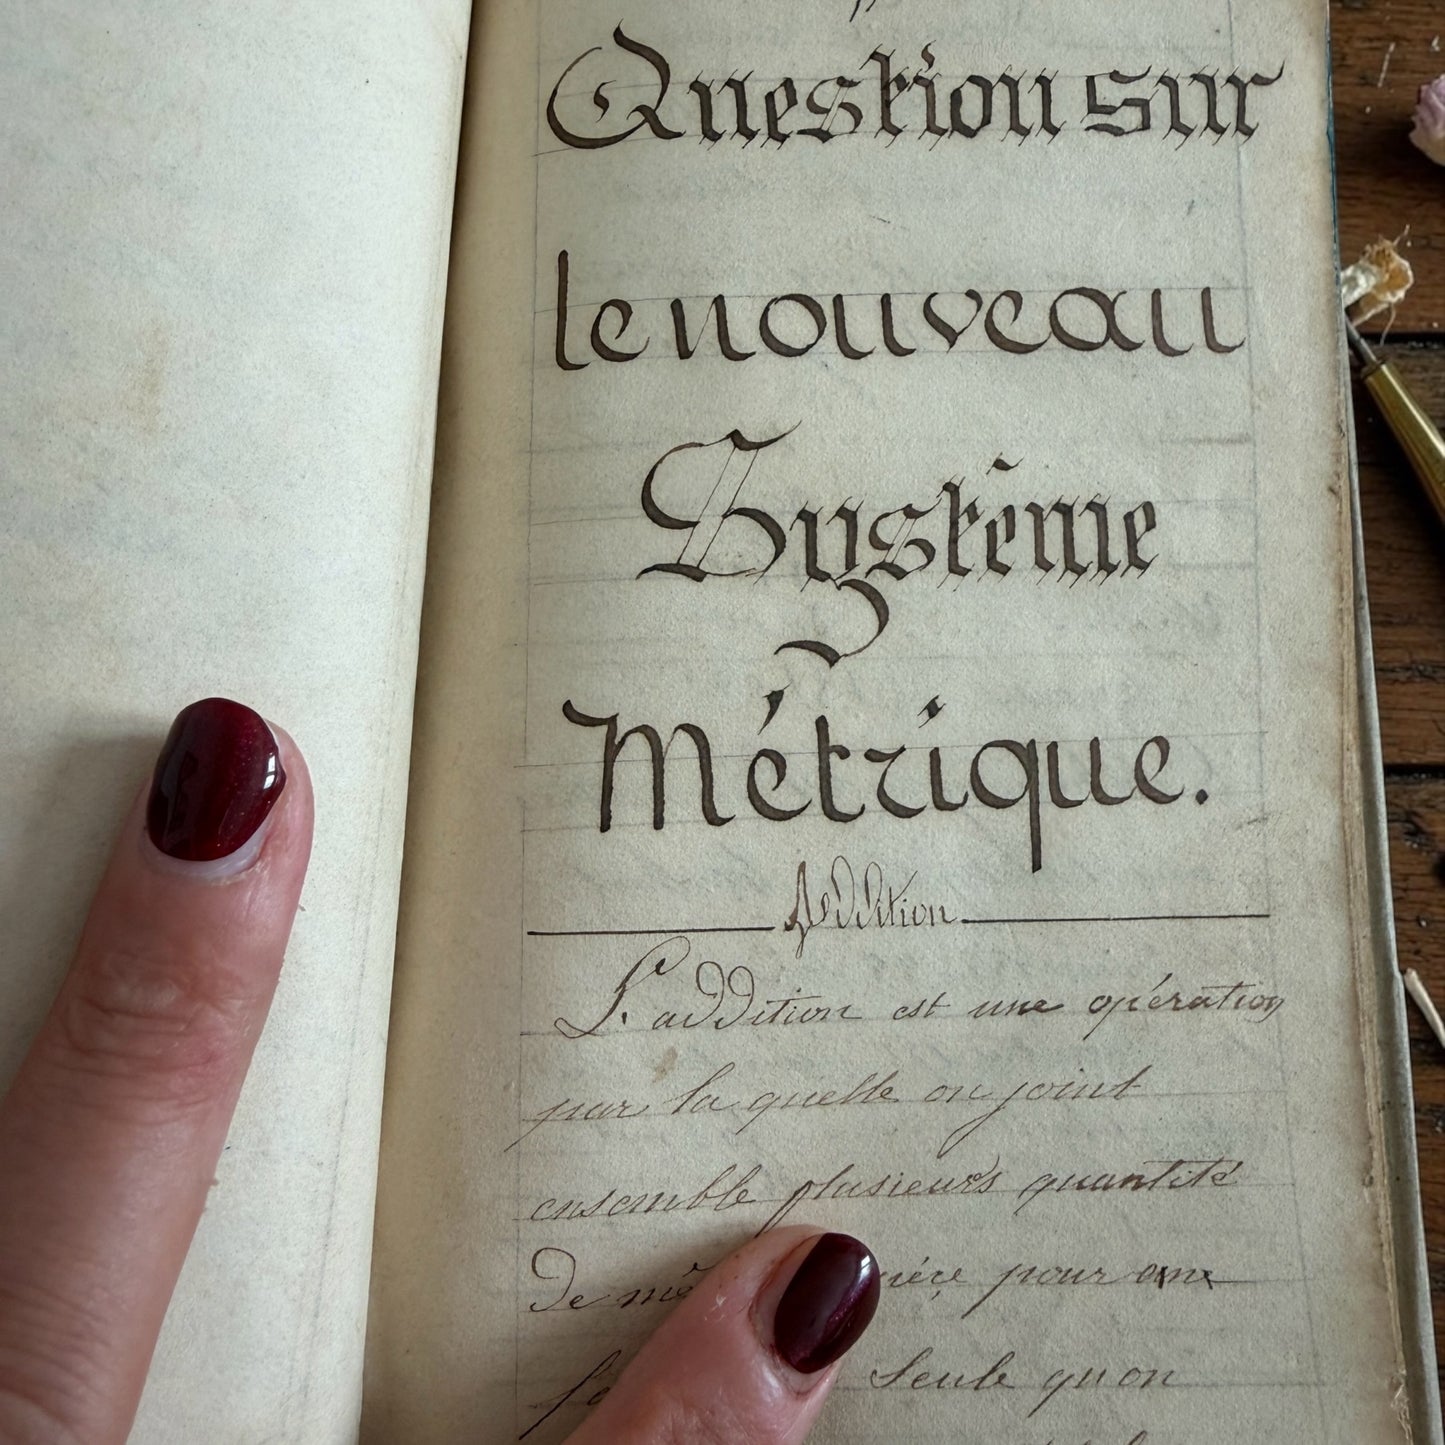 Question sur
le nouveau
Système
Métrique.
Addition
L'addition est une opération
par la quelle on joint
ensemble plusieurs quantité
de pour
seule qu'on